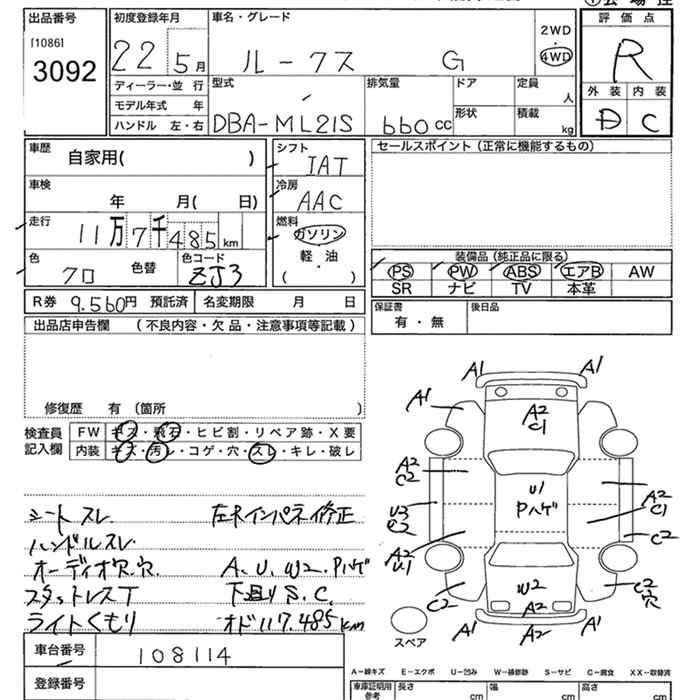 出品番号
[1086]
3092
初度登録年月
22 5月
ディーラー・並 行
モデル年式 年
ハンドル 左・右
車名・グレード
ルークス G
2WD
・
4WD
型式
DBA-ML21S
排気量
660 cc
ドア
形状
定員
人
積載
kg
評価点
R
外装 内装
D C
車歴
自家用( )
車検
年 月( 日)
走行
11万7千485 km
色
クロ
色替
色コード
ZJ3
シフト
IAT
冷房
AAC
燃料
ガソリン
軽・油
( )
R券 9,560円 預託済 名変期限 月 日
セールスポイント (正常に機能するもの)
装備品 (純正品に限る)
PS PW ABS エアB AW
SR ナビ TV 本革
保証書
有・無
後日品
出品店申告欄 (不良内容・欠品・注意事項等記載)
修復歴 有 (箇所 )
検査員
記入欄
FW キズ・飛石・ヒビ割・リペア跡・X要
内装 キズ・汚レ・コゲ・穴・スレ・キレ・破レ
シートスレ
ハンドルスレ
オーディオ欠.穴
スタットレスT
ライトくもり
左Rインパネ修正
A、U、W2、Pハゲ
下廻りS.C.
オド117.485km
A1
A1
A1
A1
A2
C1
A2
C2
U1
Pハゲ
A2
C1
U3
C3
C2
A2
U1
C2
W2
A2
C2
穴
A1
A2
A1
スペア
車台番号
108114
登録番号
A−線キズ E−エクボ U−凹み W−補修跡 S−サビ C−腐食 XX−取替済
車庫証明用
参考
長さ cm
幅 cm
高さ cm